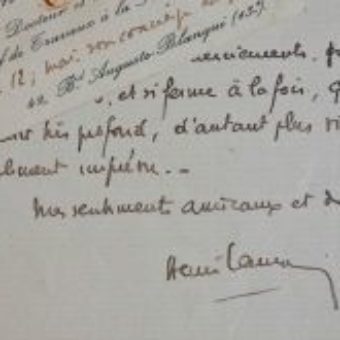 Docteur ès
de Travaux à la
12, mai. son concierge
42, Bᵈ Auguste-Blanqui (13ᵉ)
remerciements. 
, et si ferme à la fois,
très profond, d'autant plus
imprévu. _
Mes sentiments amicaux et d
Henri